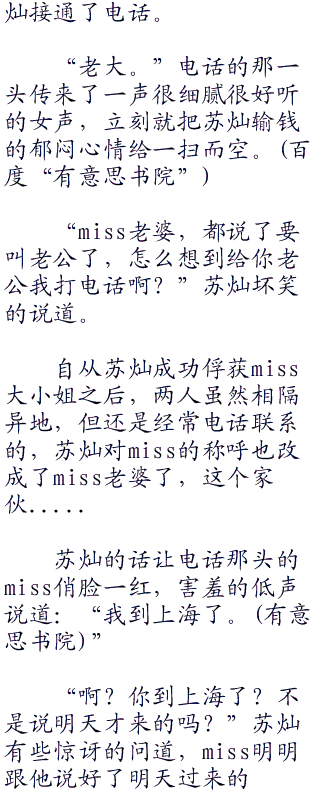 灿接通了电话。
“老大。”电话的那一
头传来了一声很细腻很好听
的女声，立刻就把苏灿输钱
的郁闷心情给一扫而空。(百
度“有意思书院”)
“miss老婆，都说了要
叫老公了，怎么想到给你老
公我打电话啊？”苏灿坏笑
的说道。
自从苏灿成功俘获miss
大小姐之后，两人虽然相隔
异地，但还是经常电话联系
的，苏灿对miss的称呼也改
成了miss老婆了，这个家
伙.....
苏灿的话让电话那头的
miss俏脸一红，害羞的低声
说道：“我到上海了。(有意
思书院)”
“啊？你到上海了？不
是说明天才来的吗？”苏灿
有些惊讶的问道，miss明明
跟他说好了明天过来的